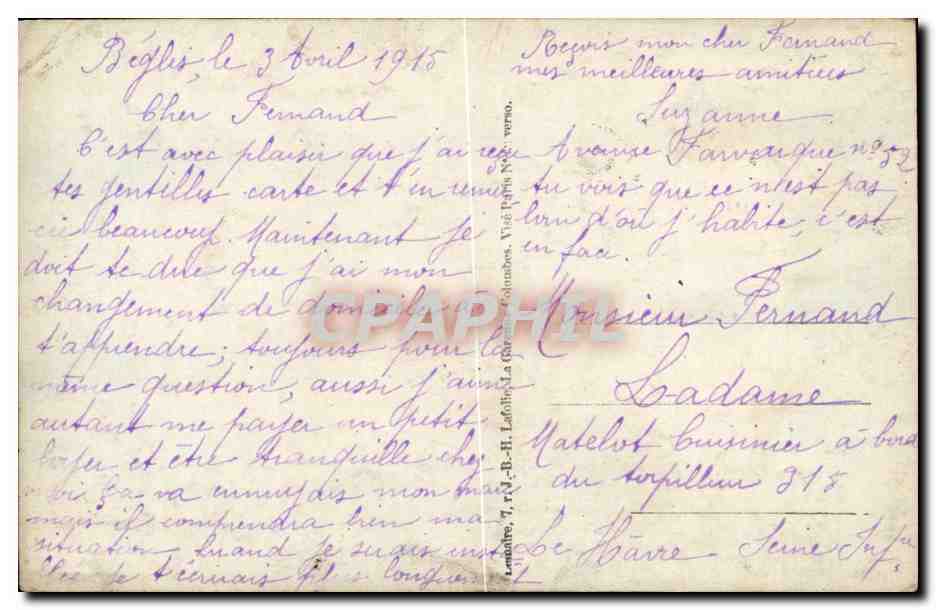 Béglis, le 3 Avril 1915
Cher Fernand
C'est avec plaisir que j'ai reçu
tes gentilles carte et t'en remer
cie beaucoup. Maintenant je
doit te dire que j'ai mon
changement de domicile à
t'apprendre; toujours pour la
même question, aussi j'aime
autant me payer un petit
loyer et être tranquille chez
moi ça va ennuyais mon mari
mais il comprendra bien ma
situation, quand je serais inst
llée je t'écrirais plus longuem
Reçois mon cher Fernand
mes meilleures amitiées
Suzanne
Avenue Farvarque nº 52
tu vois que ce n'est pas
loin d'où j'habite, c'est
en face.
Monsieur Fernand
Ladame
Matelot Cuisinier à bord
du torpilleur 318
Le Hâvre - Seine Infre
Lemaire, 7, r. J.-B.-H. Lafolie, La Garenne-Colombes. Visé Paris No verso.
CPAPHIL